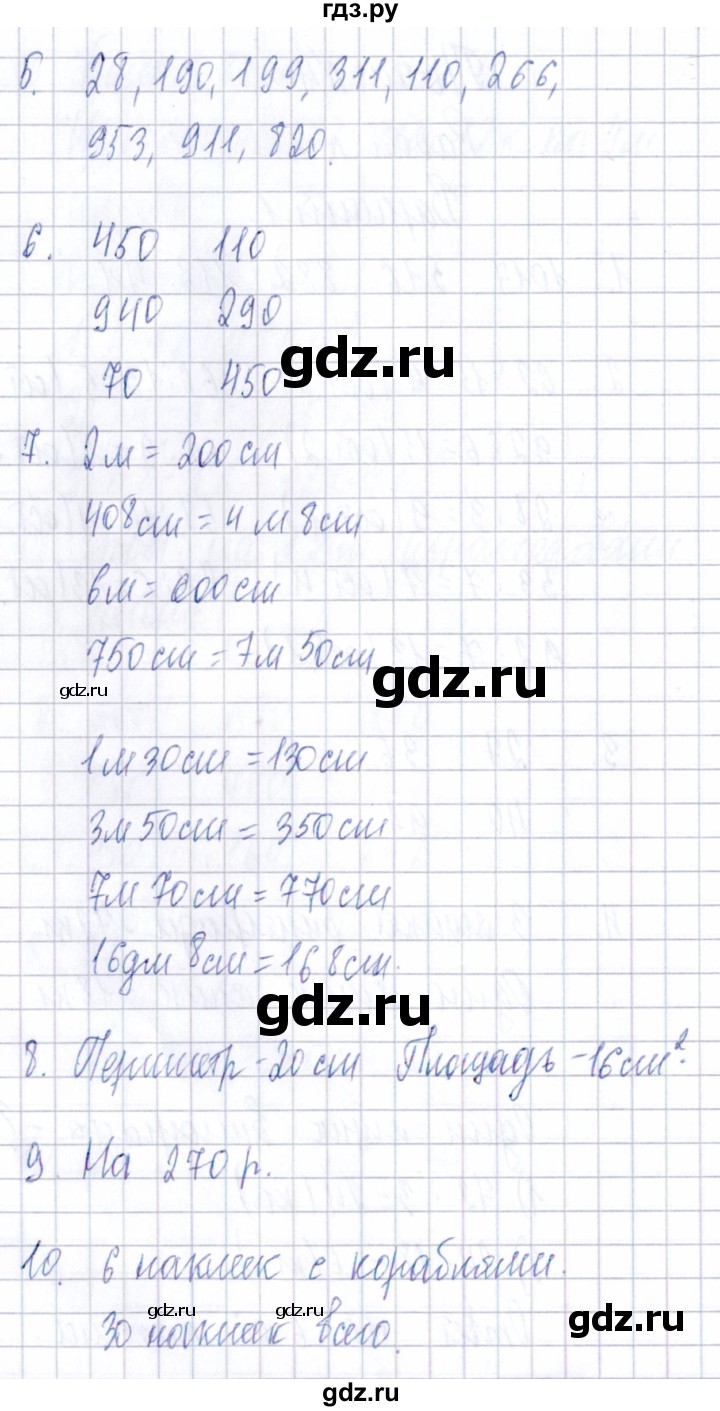 гдз.ру
5. 28, 190, 199, 311, 110, 266,
953, 911, 820.
6. 450 110
940 290
gdz.ru
70 450
7. 2м = 200см
408см = 4м 8см
6м = 600см
750см = 7м 50см
gdz.ru
gdz.ru
1м 30см = 130см
3м 50см = 350см
7м 70см = 770см
16дм 8см = 168см.
gdz.ru
8. Периметр - 20 см Площадь - 16 см².
9. На 270 р.
10. 6 наклеек с кораблями.
gdz.ru gdz.ru
gdz.ru
30 наклеек всего.
gdz.ru